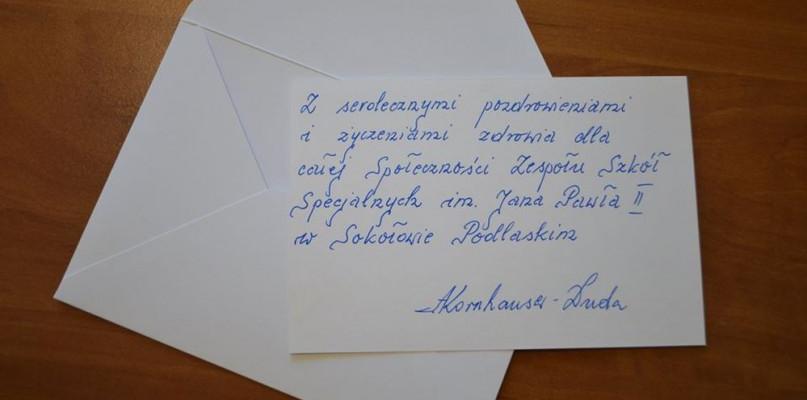 Z serdecznymi pozdrowieniami
i życzeniami zdrowia dla
całej Społeczności Zespołu Szkół
Specjalnych im. Jana Pawła II
w Sokołowie Podlaskim
AKornhauser-Duda